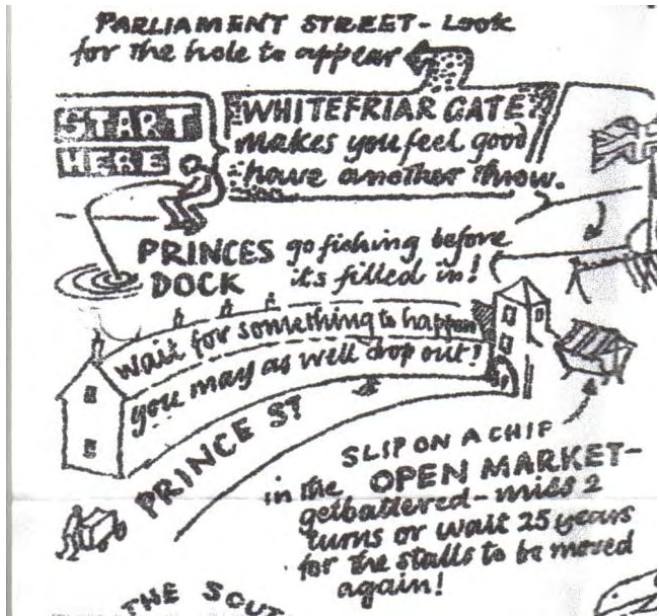 PARLIAMENT STREET - Look
for the hole to appear
START
HERE
WHITEFRIAR GATE
makes you feel good
have another throw.
PRINCES
DOCK
go fishing before
it's filled in!
wait for something to happen
you may as well drop out!
PRINCE ST
SLIP ON A CHIP
in the OPEN MARKET -
get battered - miss 2
turns or wait 25 years
for the stalls to be moved
again!
THE SOUT